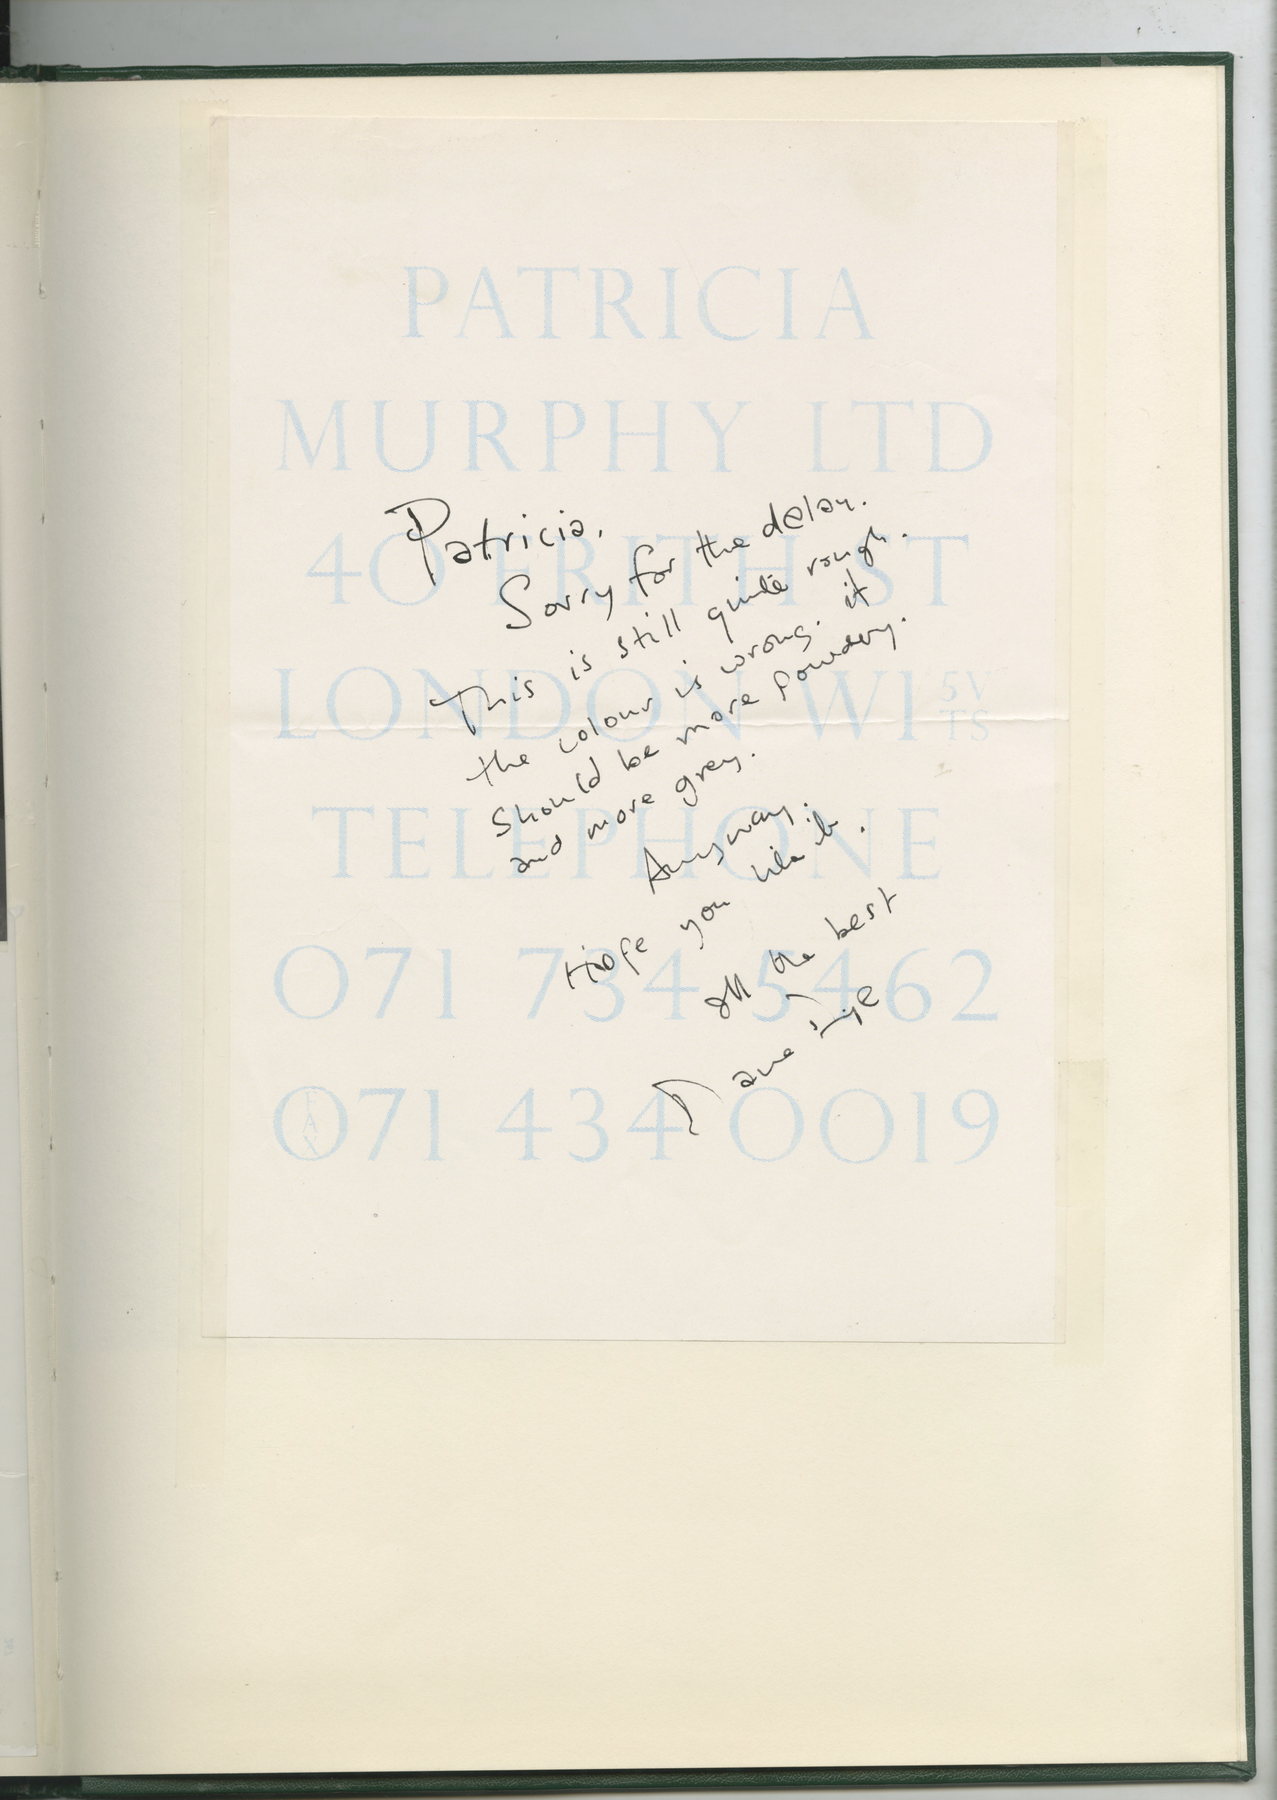 PATRICIA
MURPHY LTD
40 FRITH ST
LONDON W1 5V
TS
TELEPHONE
071 734 5462
FAX
071 434 0019
Patricia.
Sorry for the delay.
This is still quite rough.
the colour is wrong. it
should be more powdery.
and more grey.
Anyway.
Hope you like it.
all the best
Dave